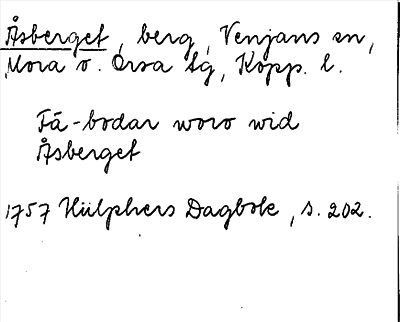 Åsberget, berg, Venjans sn,
Mora o. Orsa tg, Kopp. l.
Fä-bodar woro wid
Åsberget
1757 Hülphers Dagbok, s. 202.